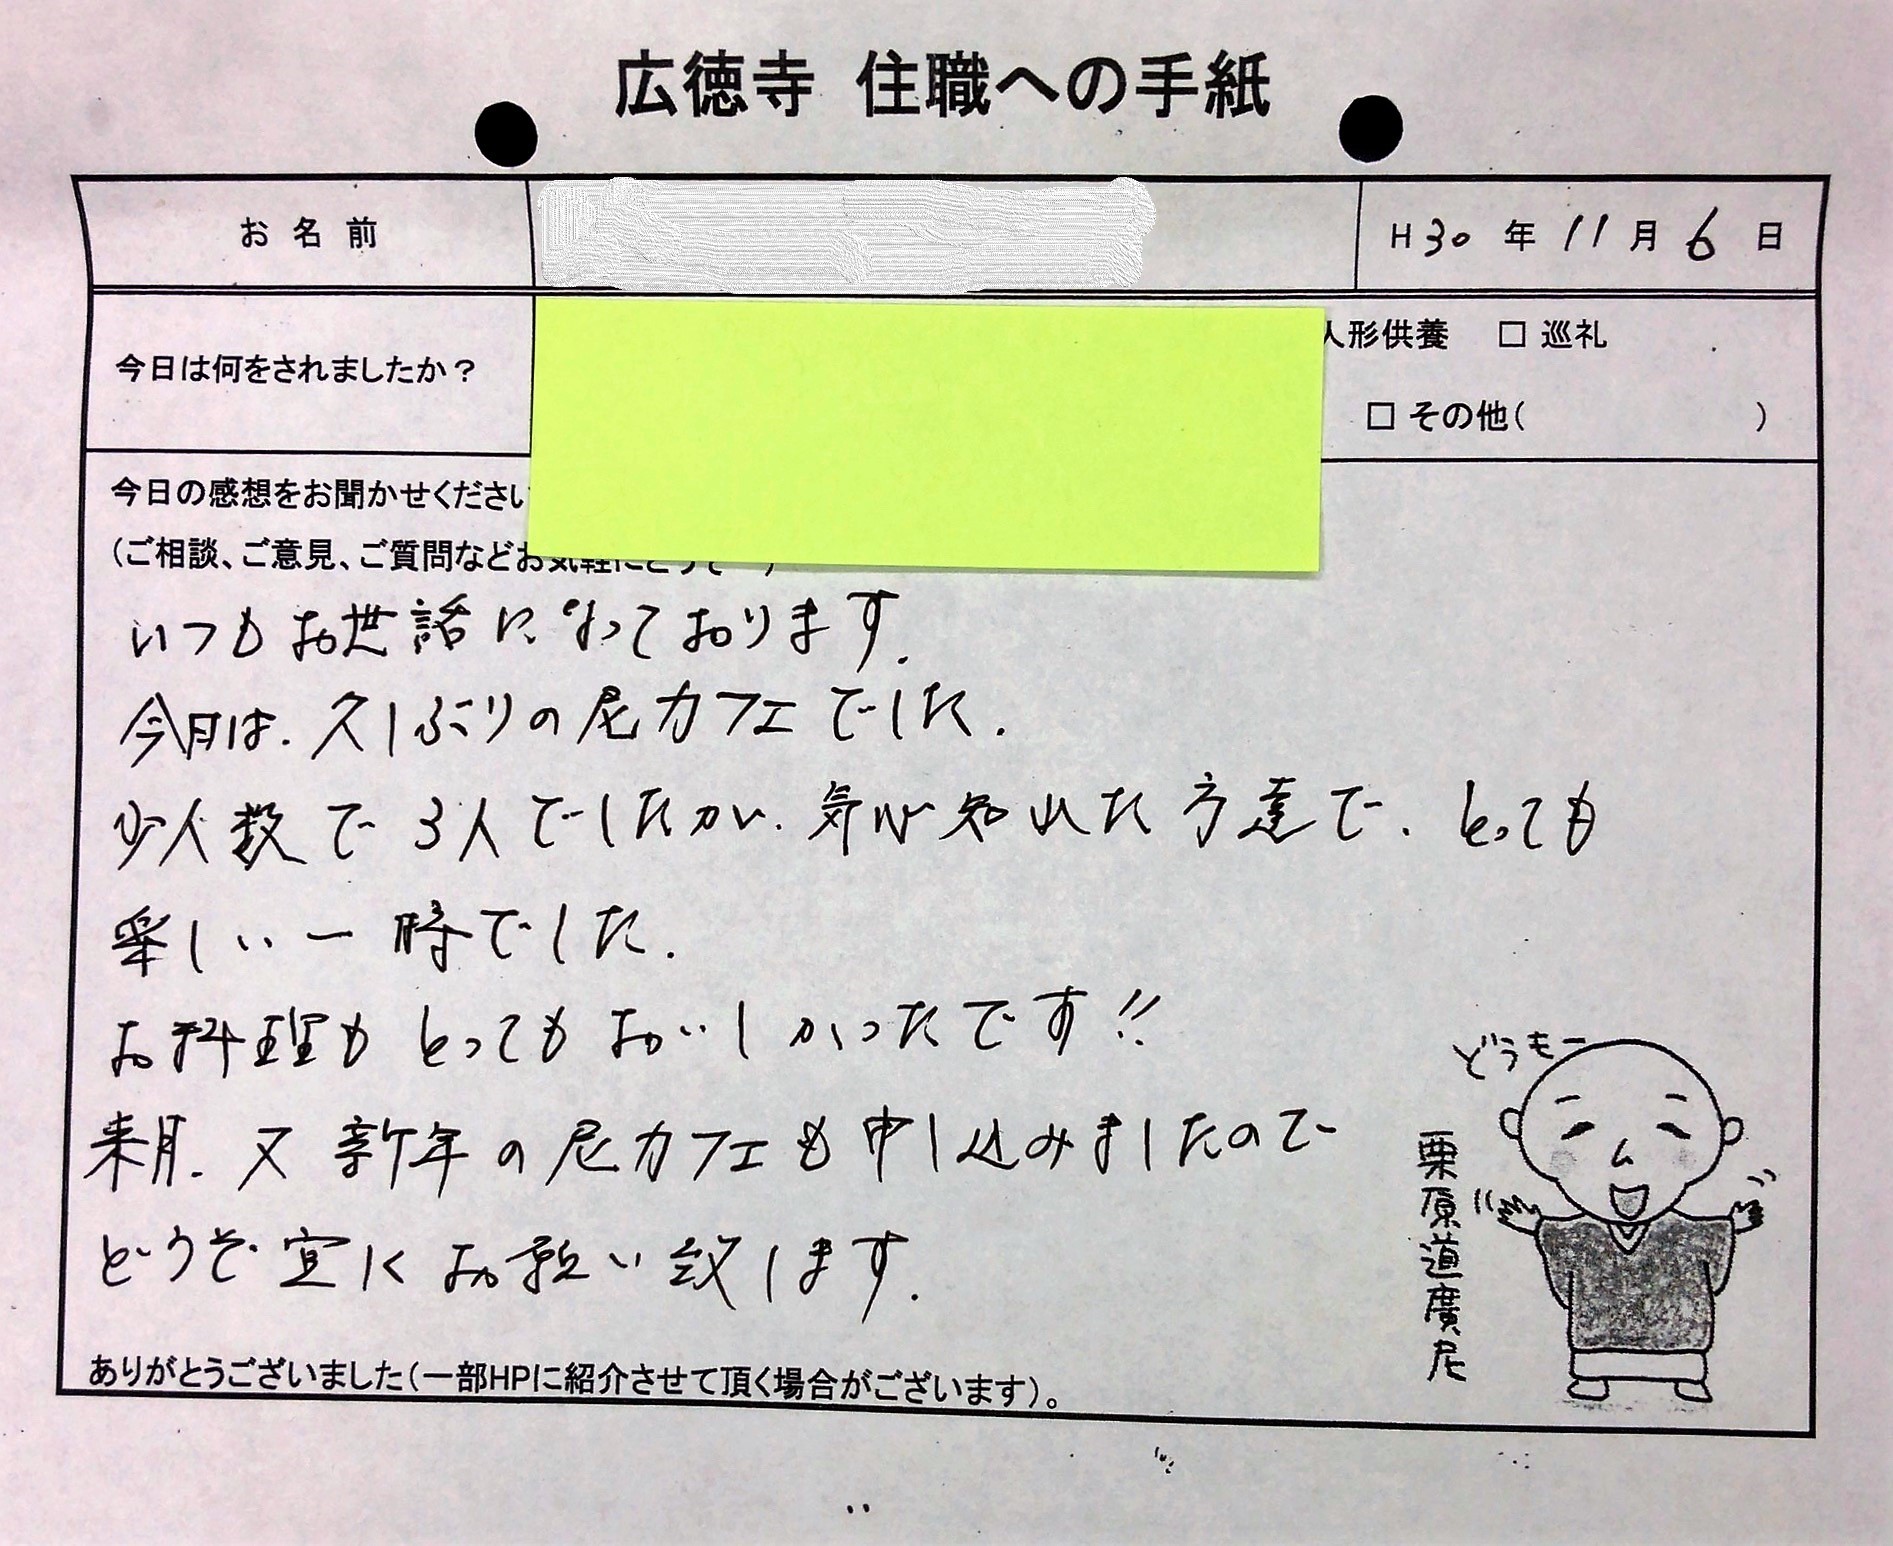 広徳寺 住職への手紙
お名前
H30年11月6日
今日は何をされましたか？
人形供養 □ 巡礼
□ その他( )
今日の感想をお聞かせください
(ご相談、ご意見、ご質問などお気軽にどうぞ )
いつもお世話になっております.
今日は. 久しぶりの尼カフェでした.
少人数で3人でしたが. 気心知れた方達で. とっても
楽しい一時でした.
お料理もとってもおいしかったです!!
来月. 又新年の尼カフェも申し込みましたので
どうぞ宜しくお願い致します.
どうもー
栗原道廣尼
ありがとうございました(一部HPに紹介させて頂く場合がございます)。